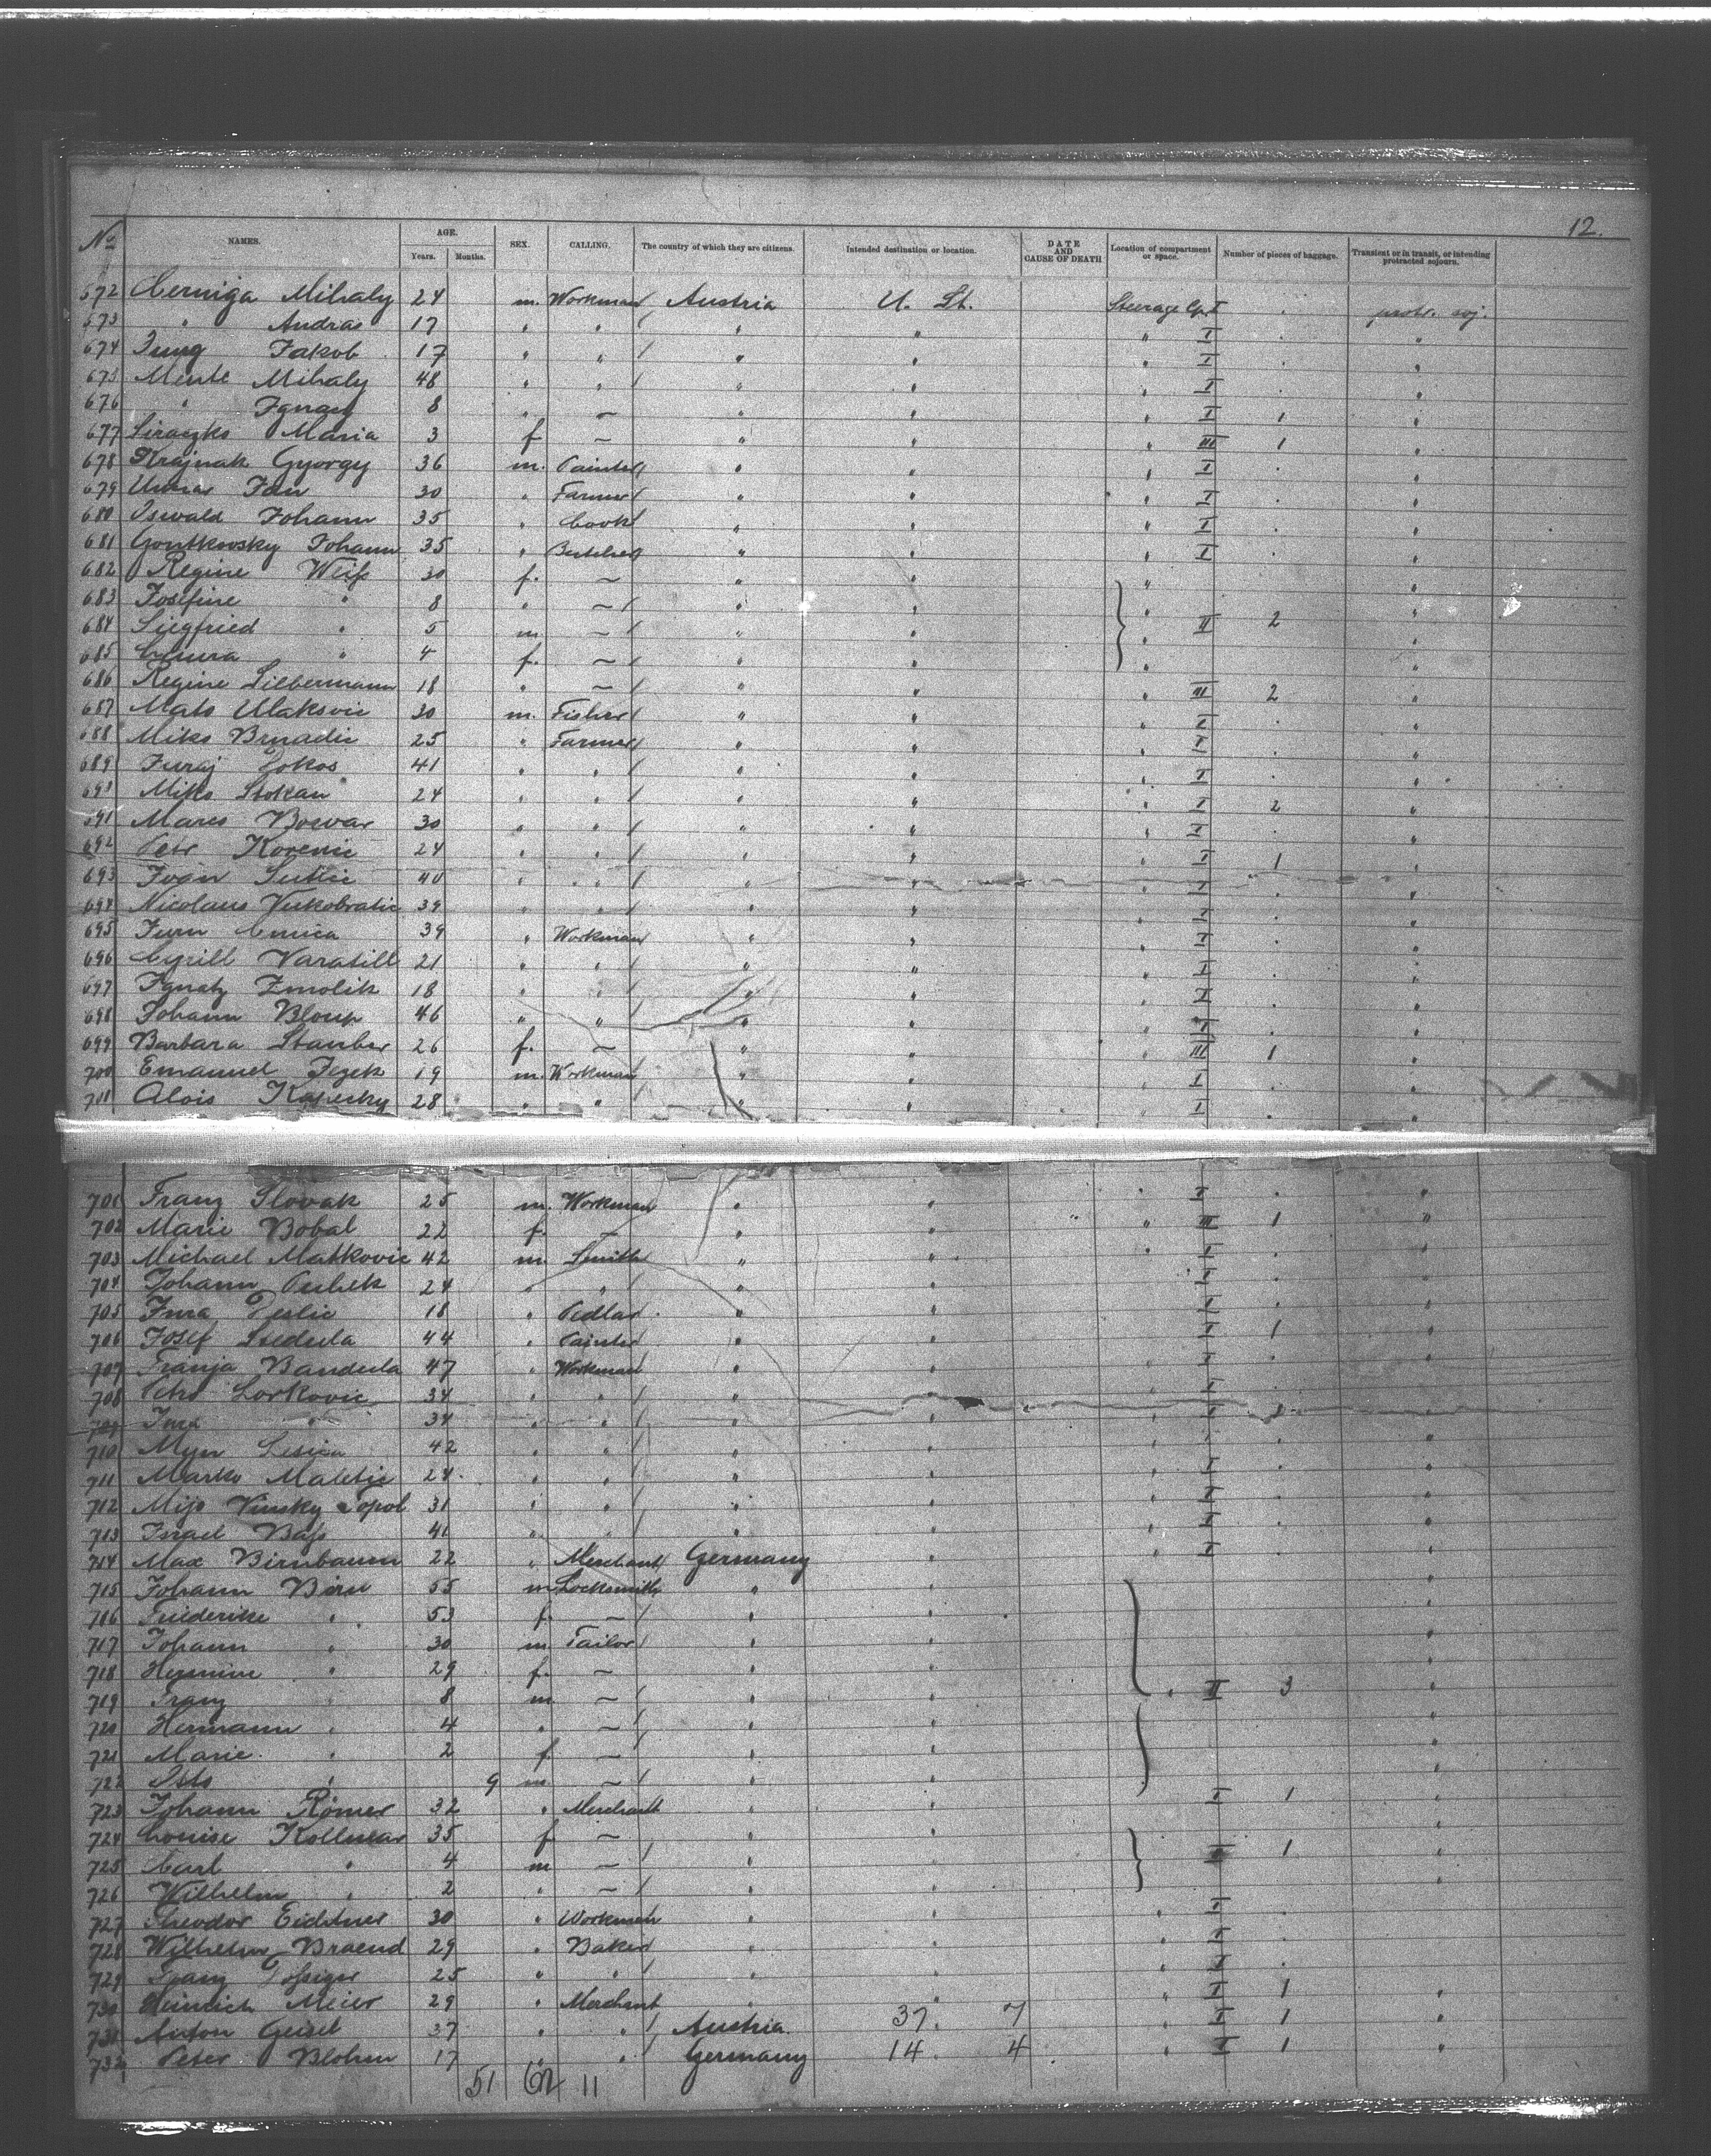 12.
No NAMES. AGE. Years. Months. SEX. CALLING. The country of which they are citizens. Intended destination or location. DATE AND CAUSE OF DEATH Location of compartment or space. Number of pieces of baggage. Transient or in transit, or intending protracted sojourn.
672 Cerniga Mihaly 24 m. Workman Austria U. St. Steerage Cpt I protr. soj.
673 " Andras 17 " " " " " I "
674 Jung Jakob 17 " " " " " I "
675 Mihaly 48 " " " " " I "
676 " Ignacz 8 " — " " " I 1 "
677 Maria 3 f — " " " III 1 "
678 Krajnak Gyorgy 36 m. Painter " " " I "
679 Jan 30 " Farmer " " " I "
680 Oswald Johann 35 " Cook " " " I "
681 Gontkovsky Johann 35 " Butcher " " " I "
682 Regine Weiss 30 f. — " " " "
683 Josefine " 8 " — " " " "
684 Siegfried " 5 m — " " " II 2 "
685 " 4 f. — " " " "
686 Regine Silbermann 18 " — " " " III 2 "
687 Mato Ulaksvic 30 m. Fisher " " " I "
688 Miko Brnadic 25 " Farmer " " " I "
689 Juraj Zokos 41 " " " " " I "
Miko Stokan 24 " " " " " I 2 "
691 Marco Bocvar 30 " " " " " I "
692 Petr Korenic 24 " " " " " I 1 "
693 Ivan 40 " " " " " I "
694 Nicolaus Vukobratic 39 " " " " " I "
695 39 " Workman " " " I "
696 Cyrill Varatill 21 " " " " " I "
697 Ignatz Zmolik 18 " " " " " I "
698 Johann Bloup 46 " " " " " I "
699 Barbara Stauber 26 f. — " " " III 1 "
700 Emanuel Jezek 19 m. Workman " " " I "
Alois Kopecky 28 " " " " " I "
701 Franz Slovak 25 m. Workman " " " I "
702 Marie Bobal 22 f. — " " " III 1 "
703 Michael Matkovic 42 m. Smith " " " I "
704 Johann 24 " " " " " I "
705 Jura Peslic 18 " Pedlar " " " I "
706 Josef 44 " Painter " " " I 1 "
707 Franja Bandula 47 " Workman " " " I "
708 Petro Lorkovic 34 " " " " " I "
709 Jura " 34 " " " " " I 1 "
710 42 " " " " " "
711 Marko Maletic 24 " " " " " I "
712 Mijo Vinsky Topol 31 " " " " " I "
713 Israel Bass 41 " " " " " I "
714 Max Birnbaum 22 " Merchant Germany " " I "
715 Johann Birn 55 m Locksmith " " "
716 Friederike " 53 f — " " "
717 Johann " 30 m Tailor " " "
718 Hermine " 29 f. — " " "
719 Franz " 8 m — " " " II 3 "
720 Hermann " 4 " — " " "
721 Marie " 2 f — " " "
722 Otto " 9 m — " " "
723 Johann Römer 32 " Merchant " " I 1 "
724 Louise Kollmar 35 f — " " "
725 Carl " 4 m — " " 1 "
726 Wilhelm " 2 " — " " "
727 Theodor Eichtner 30 " Workman " " " I
728 Wilhelm Braend 29 " Baker " " " I
729 Franz 25 " " " " " I
730 Heinrich Meier 29 " Merchant " " I 1 "
731 Anton Geisel 37 " " Austria 37. 7 " I 1 "
732 Peter Blohm 17 " " Germany 14. 4 " I 1 "
51 62 11